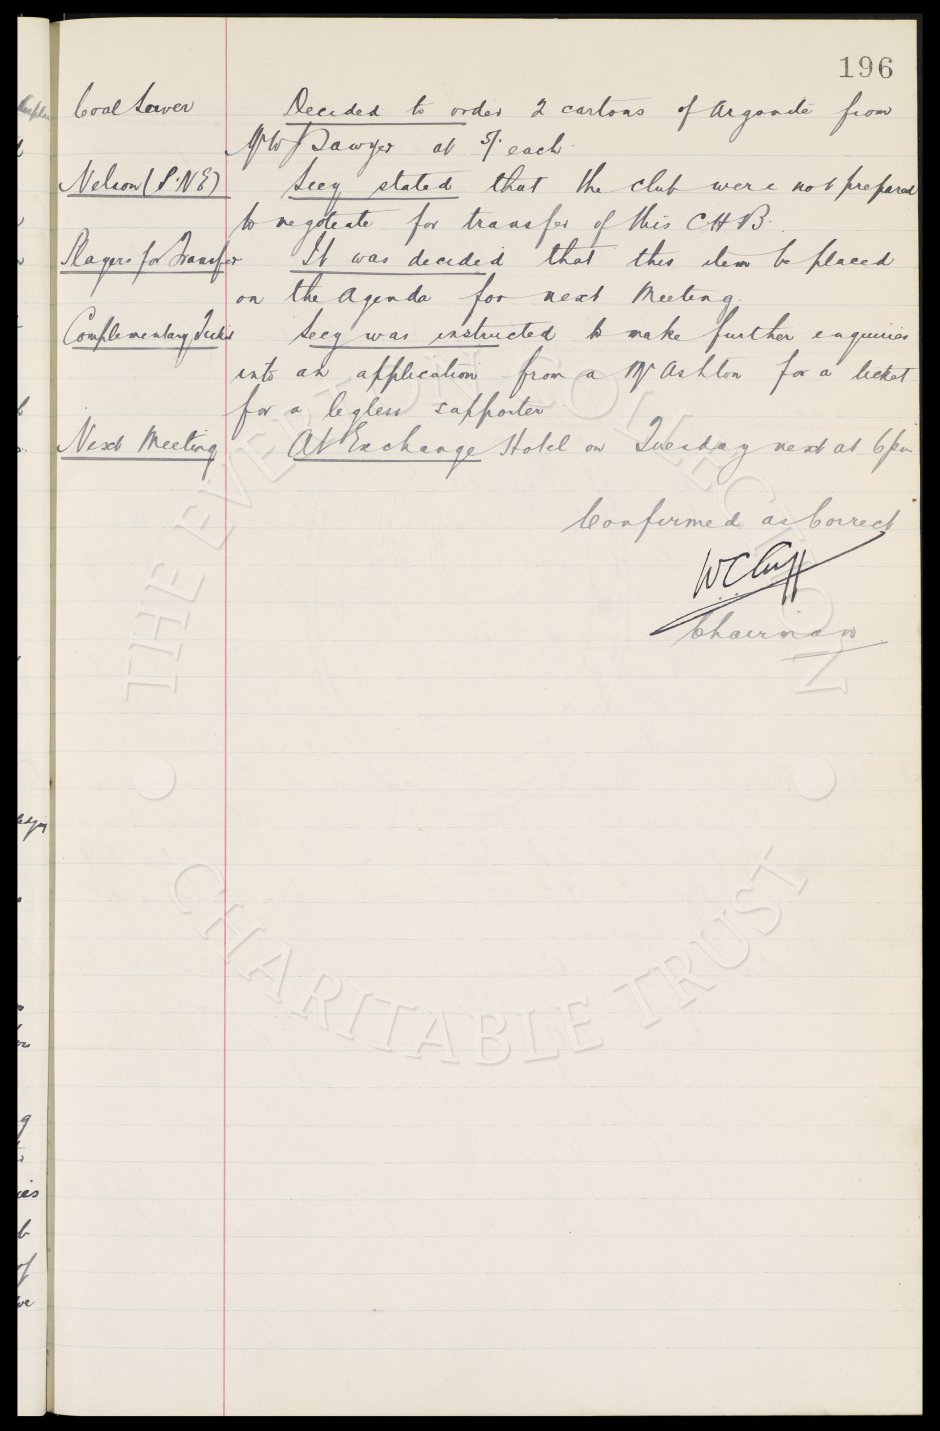 196
Coal Saver Decided to order 2 cartons of Argonite from
Mr W J Sawyer at 5/- each.
Nelson (P.N.E) Secy stated that the club were not prepared
to negotiate for transfer of this C H B.
Players for Transfer It was decided that this item be placed
on the Agenda for next Meeting.
Complimentary Tickets Secy was instructed to make further enquiries
into an application from a Mr Ashton for a ticket
for a legless supporter
Next Meeting At Exchange Hotel on Tuesday next at 6 pm
Confirmed as Correct
W C Cuff
Chairman
THE EVERTON COLLECTION
CHARITABLE TRUST